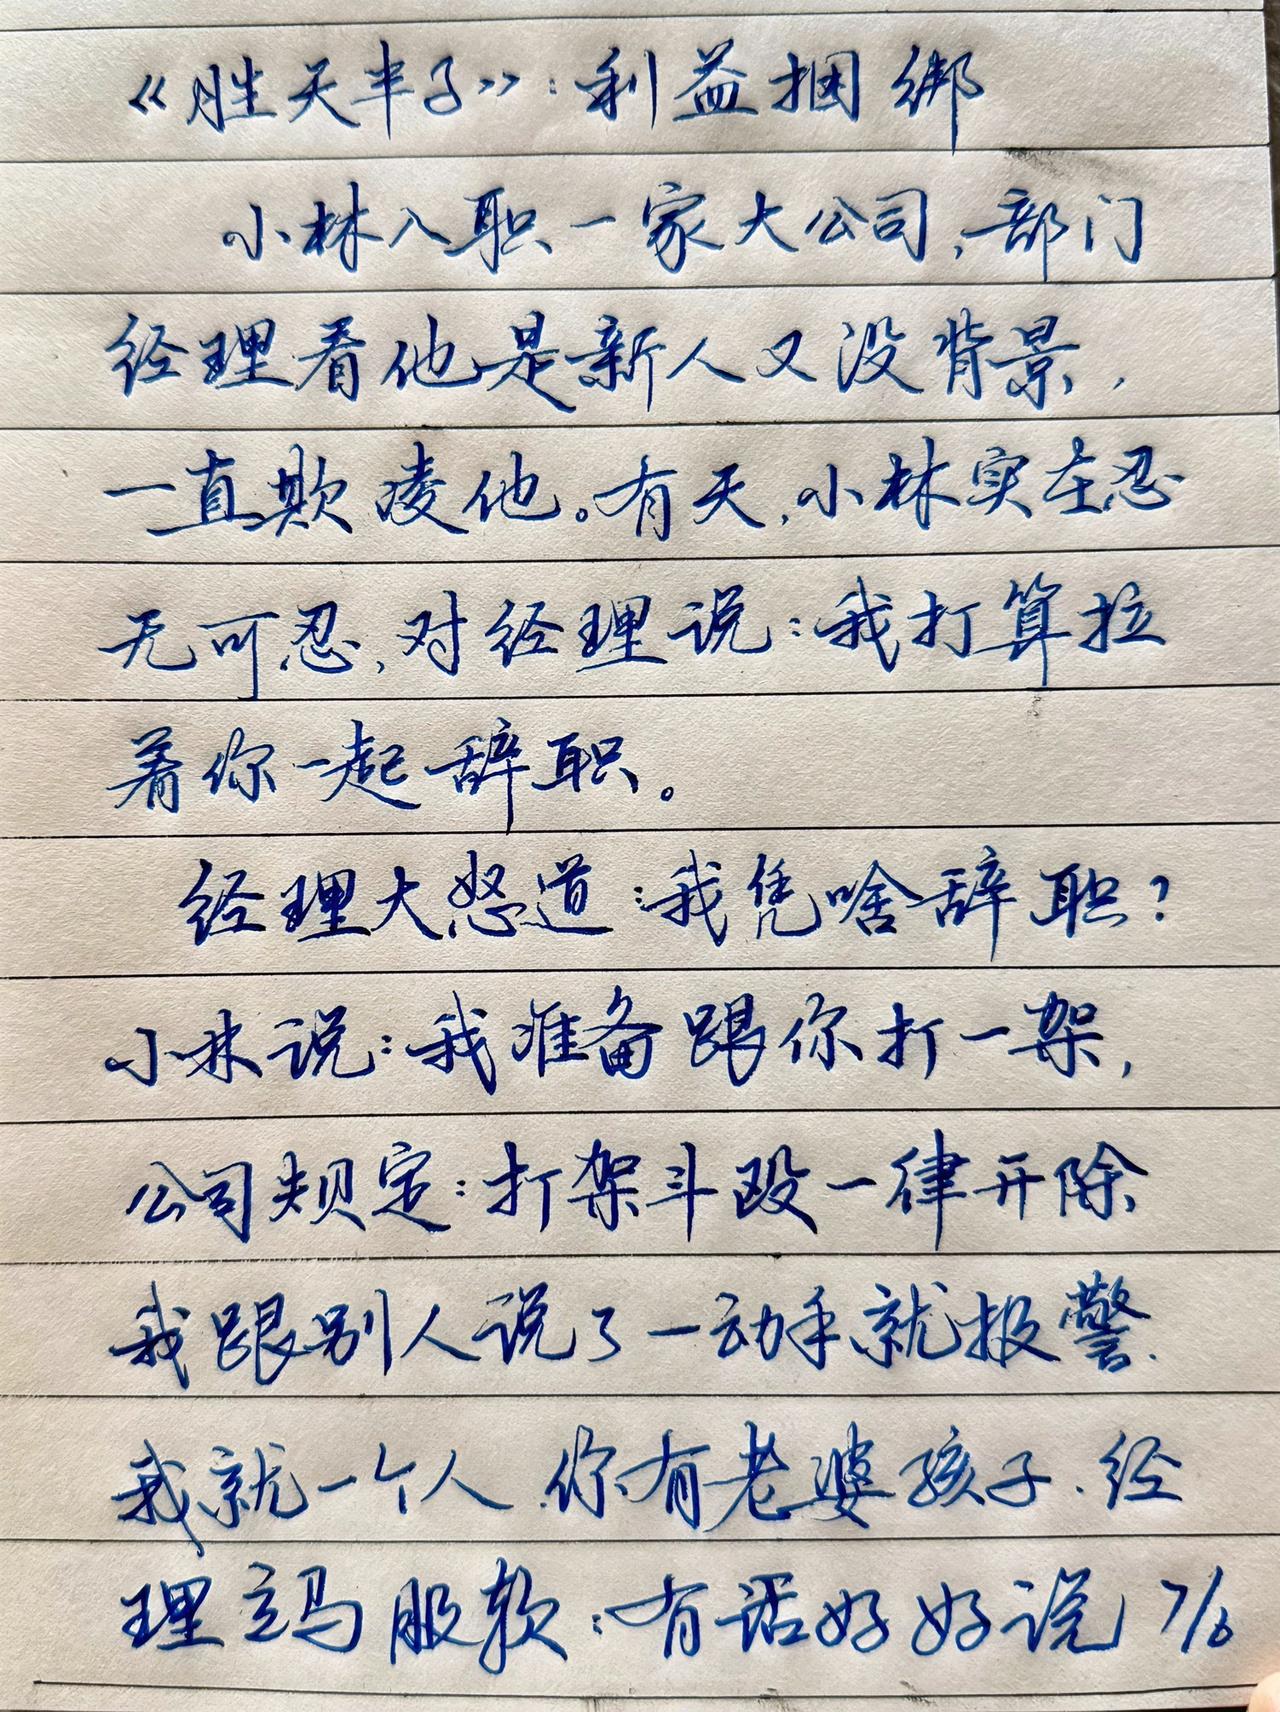 《胜天半子》：利益捆绑
小林入职一家大公司，部门
经理看他是新人又没背景，
一直欺凌他。有天，小林实在忍
无可忍，对经理说：我打算拉
着你一起辞职。
经理大怒道：我凭啥辞职？
小林说：我准备跟你打一架，
公司规定：打架斗殴一律开除
我跟别人说了一动手就报警.
我就一个人.你有老婆孩子.经
理立马服软：有话好好说 7/8